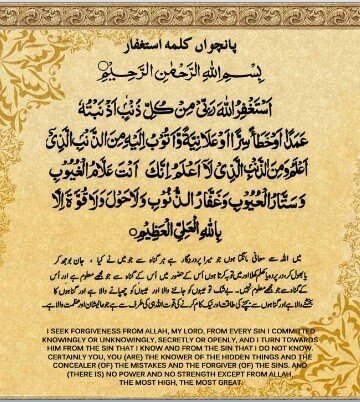 پانچواں کلمہ استغفار
بِسْمِ اللهِ الرَّحْمٰنِ الرَّحِیْمِ
اَسْتَغْفِرُ اللهَ رَبِّیْ مِنْ کُلِّ ذَنْۢبٍ اَذْنَبْتُهٗ
عَمَدًا اَوْ خَطَأً سِرًّا اَوْ عَلَانِیَةً وَّاَتُوْبُ اِلَیْهِ مِنَ الذَّنْۢبِ الَّذِیْ
اَعْلَمُ وَمِنَ الذَّنْۢبِ الَّذِیْ لَآ اَعْلَمُ اِنَّكَ اَنْتَ عَلَّامُ الْغُیُوْبِ
وَسَتَّارُ الْعُیُوْبِ وَغَفَّارُ الذُّنُوْبِ وَلَاحَوْلَ وَلَا قُوَّةَ اِلَّا
بِاللهِ الْعَلِیِّ الْعَظِیْمِ
میں اللہ سے معافی مانگتا ہوں جو میرا پروردگار ہے ہر گناہ سے جو میں نے کیا ، جان بوجھ کر
یا بھول کر، در پردہ یا کھلم کھلا اور میں توبہ کرتا ہوں اس کے حضور میں اس کے گناہ سے جو مجھے معلوم ہے اور اس
کے گناہ سے جو مجھے معلوم نہیں۔ بے شک تو غیبوں کو جاننے والا اور عیبوں کو چھپانے والا ہے اور گناہوں کا
بخشنے والا ہے اور گناہوں سے بچنے کی طاقت اور نیک کام کرنے کی قوت اللہ ہی کی طرف سے ہے جو عالیشان اور عظمت والا ہے۔
I SEEK FORGIVENESS FROM ALLAH, MY LORD, FROM EVERY SIN I COMMITTED
KNOWINGLY OR UNKNOWINGLY, SECRETLY OR OPENLY, AND I TURN TOWARDS
HIM FROM THE SIN THAT I KNOW AND FROM THE SIN THAT I DO NOT KNOW.
CERTAINLY YOU, YOU (ARE) THE KNOWER OF THE HIDDEN THINGS AND THE
CONCEALER (OF) THE MISTAKES AND THE FORGIVER (OF) THE SINS. AND
(THERE IS) NO POWER AND NO STRENGTH EXCEPT FROM ALLAH,
THE MOST HIGH, THE MOST GREAT.